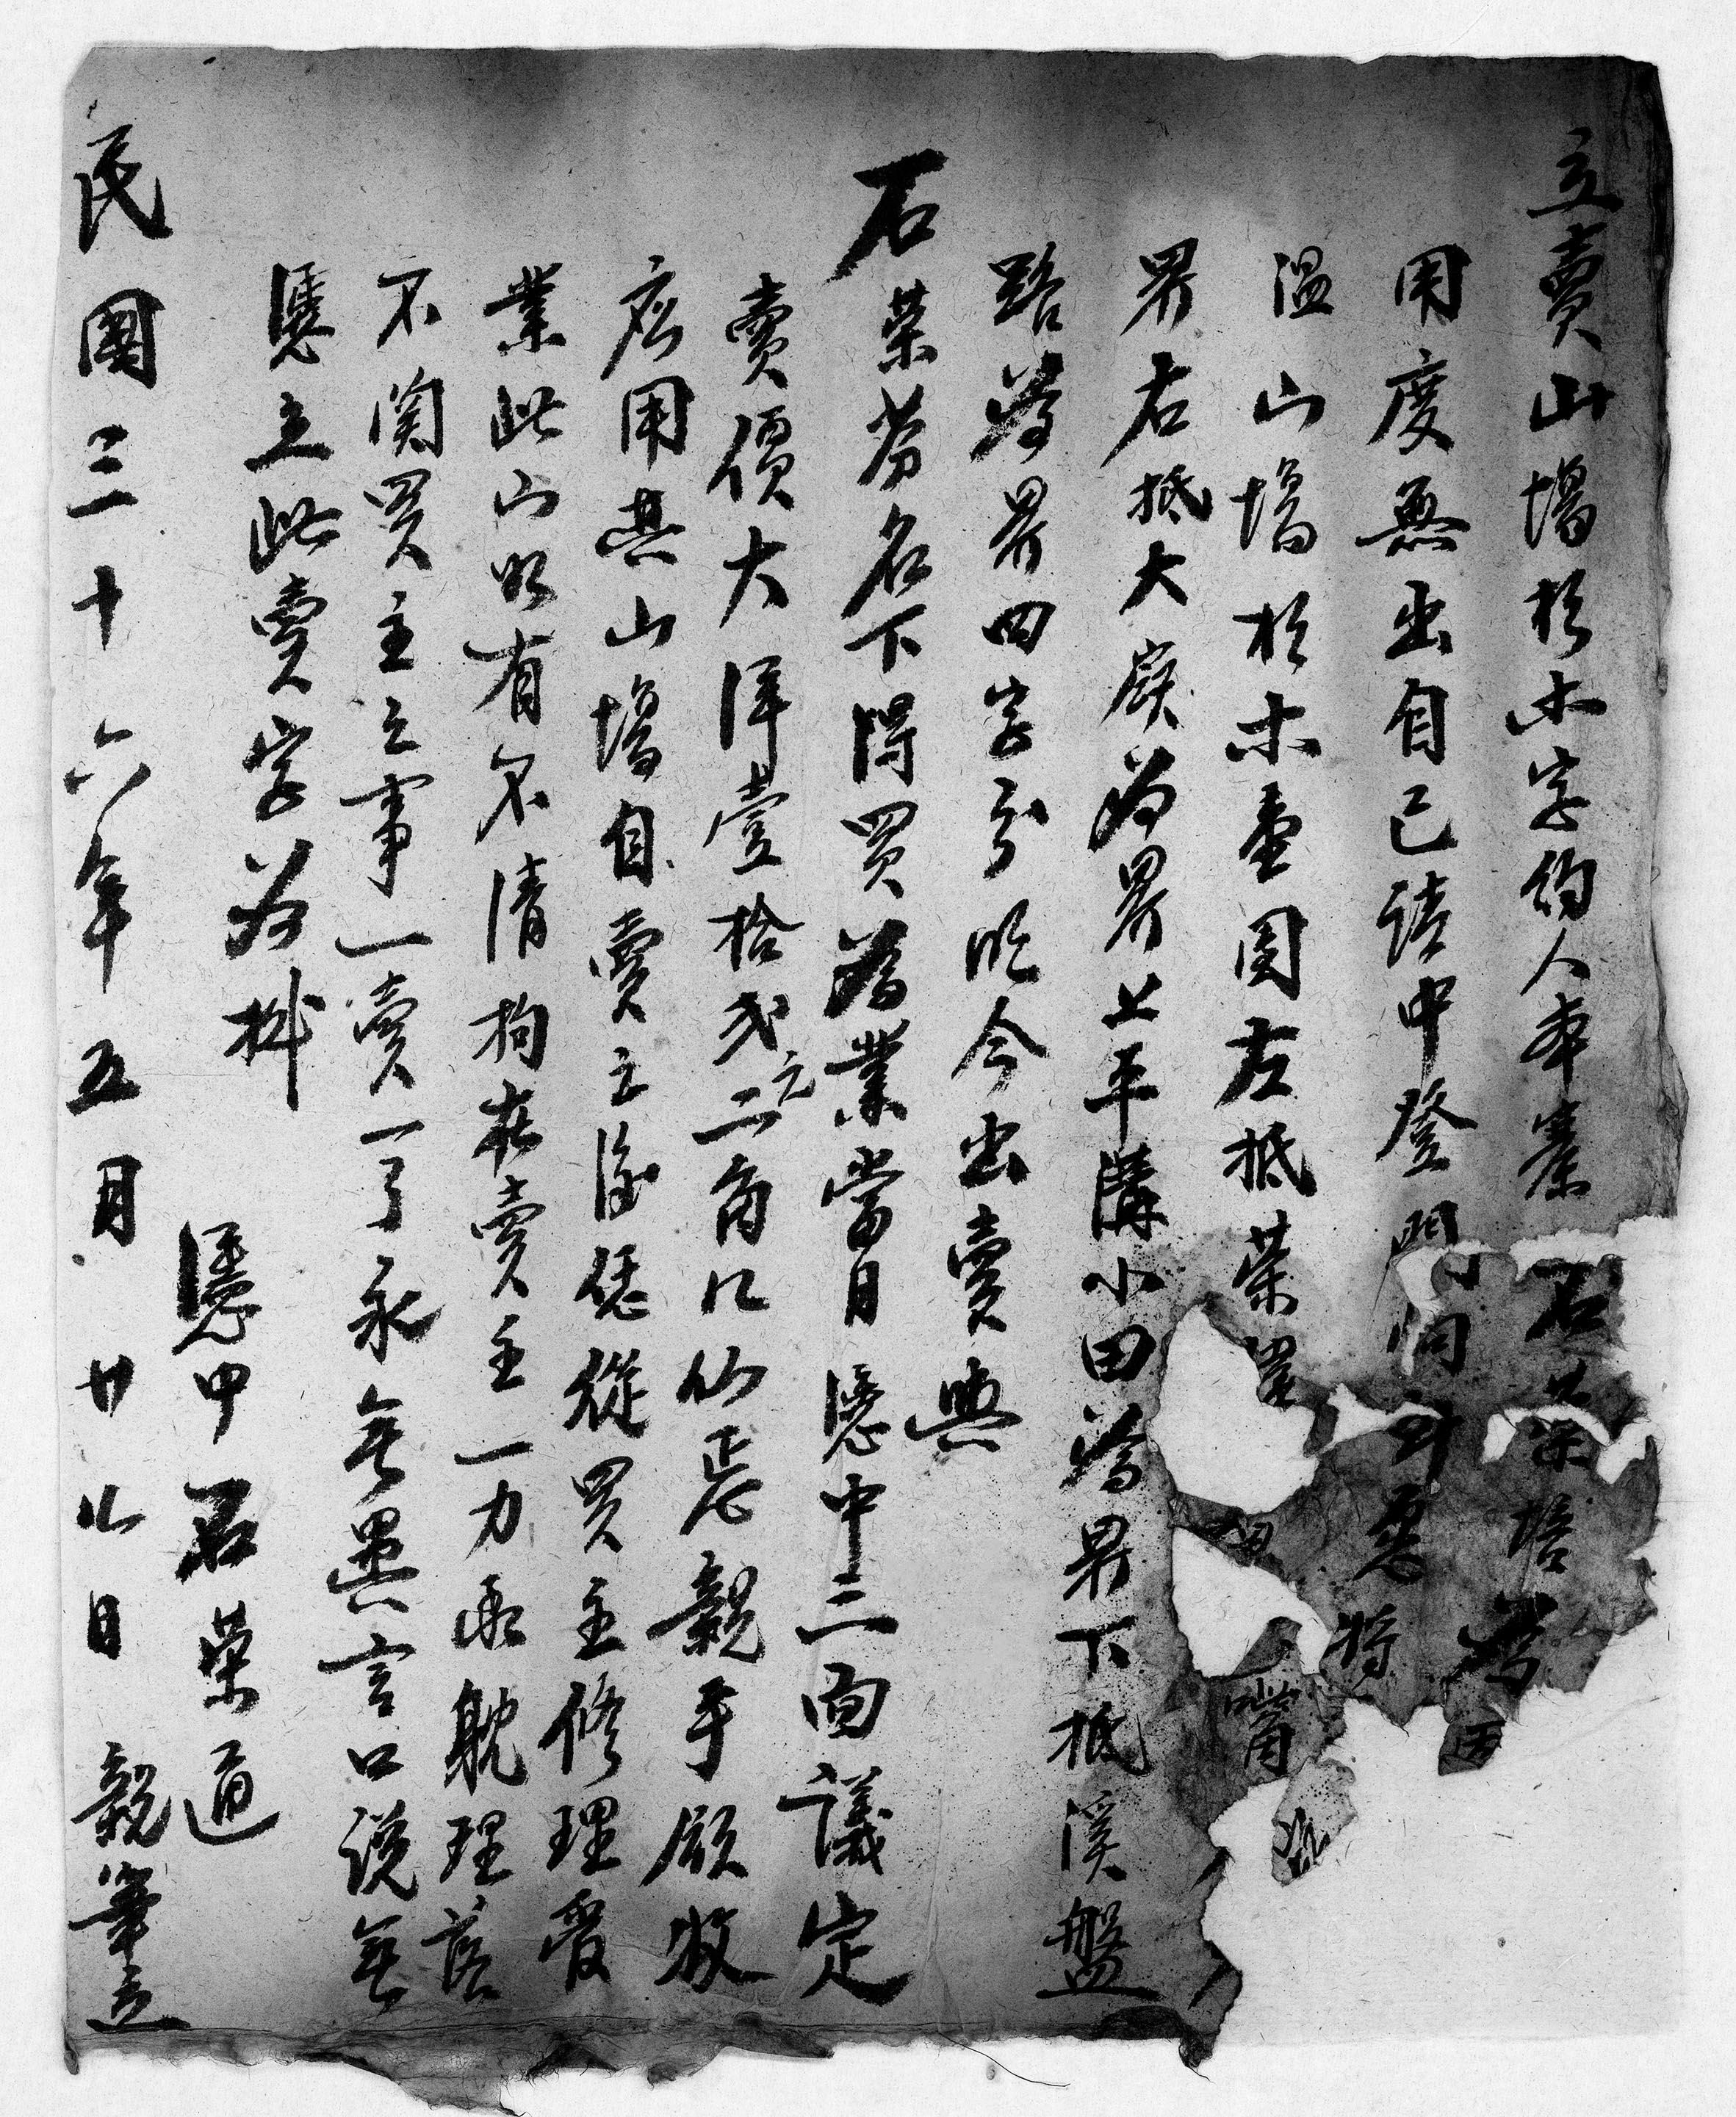 立賣山塲杉木字約人本寨石榮培為因
用度無出自己請中登門問到愿將
温山塲杉木壹團左抵榮
界右抵大嶺為界上平溝小田為界下抵溪盤
路為界四字分明今出賣與
石榮芳名下得買為業當日憑中三面議定
賣價大洋壹拾弍元二角八仙正親手領收
應用其山塲自賣之後恁從買主修理管
業此山如有不清拘在賣主一力承躭理落
不関買主之事一賣一了永無異言口說無
憑立此賣字為拠
憑中 石榮道
民國三十六年五月廿八日 親筆立